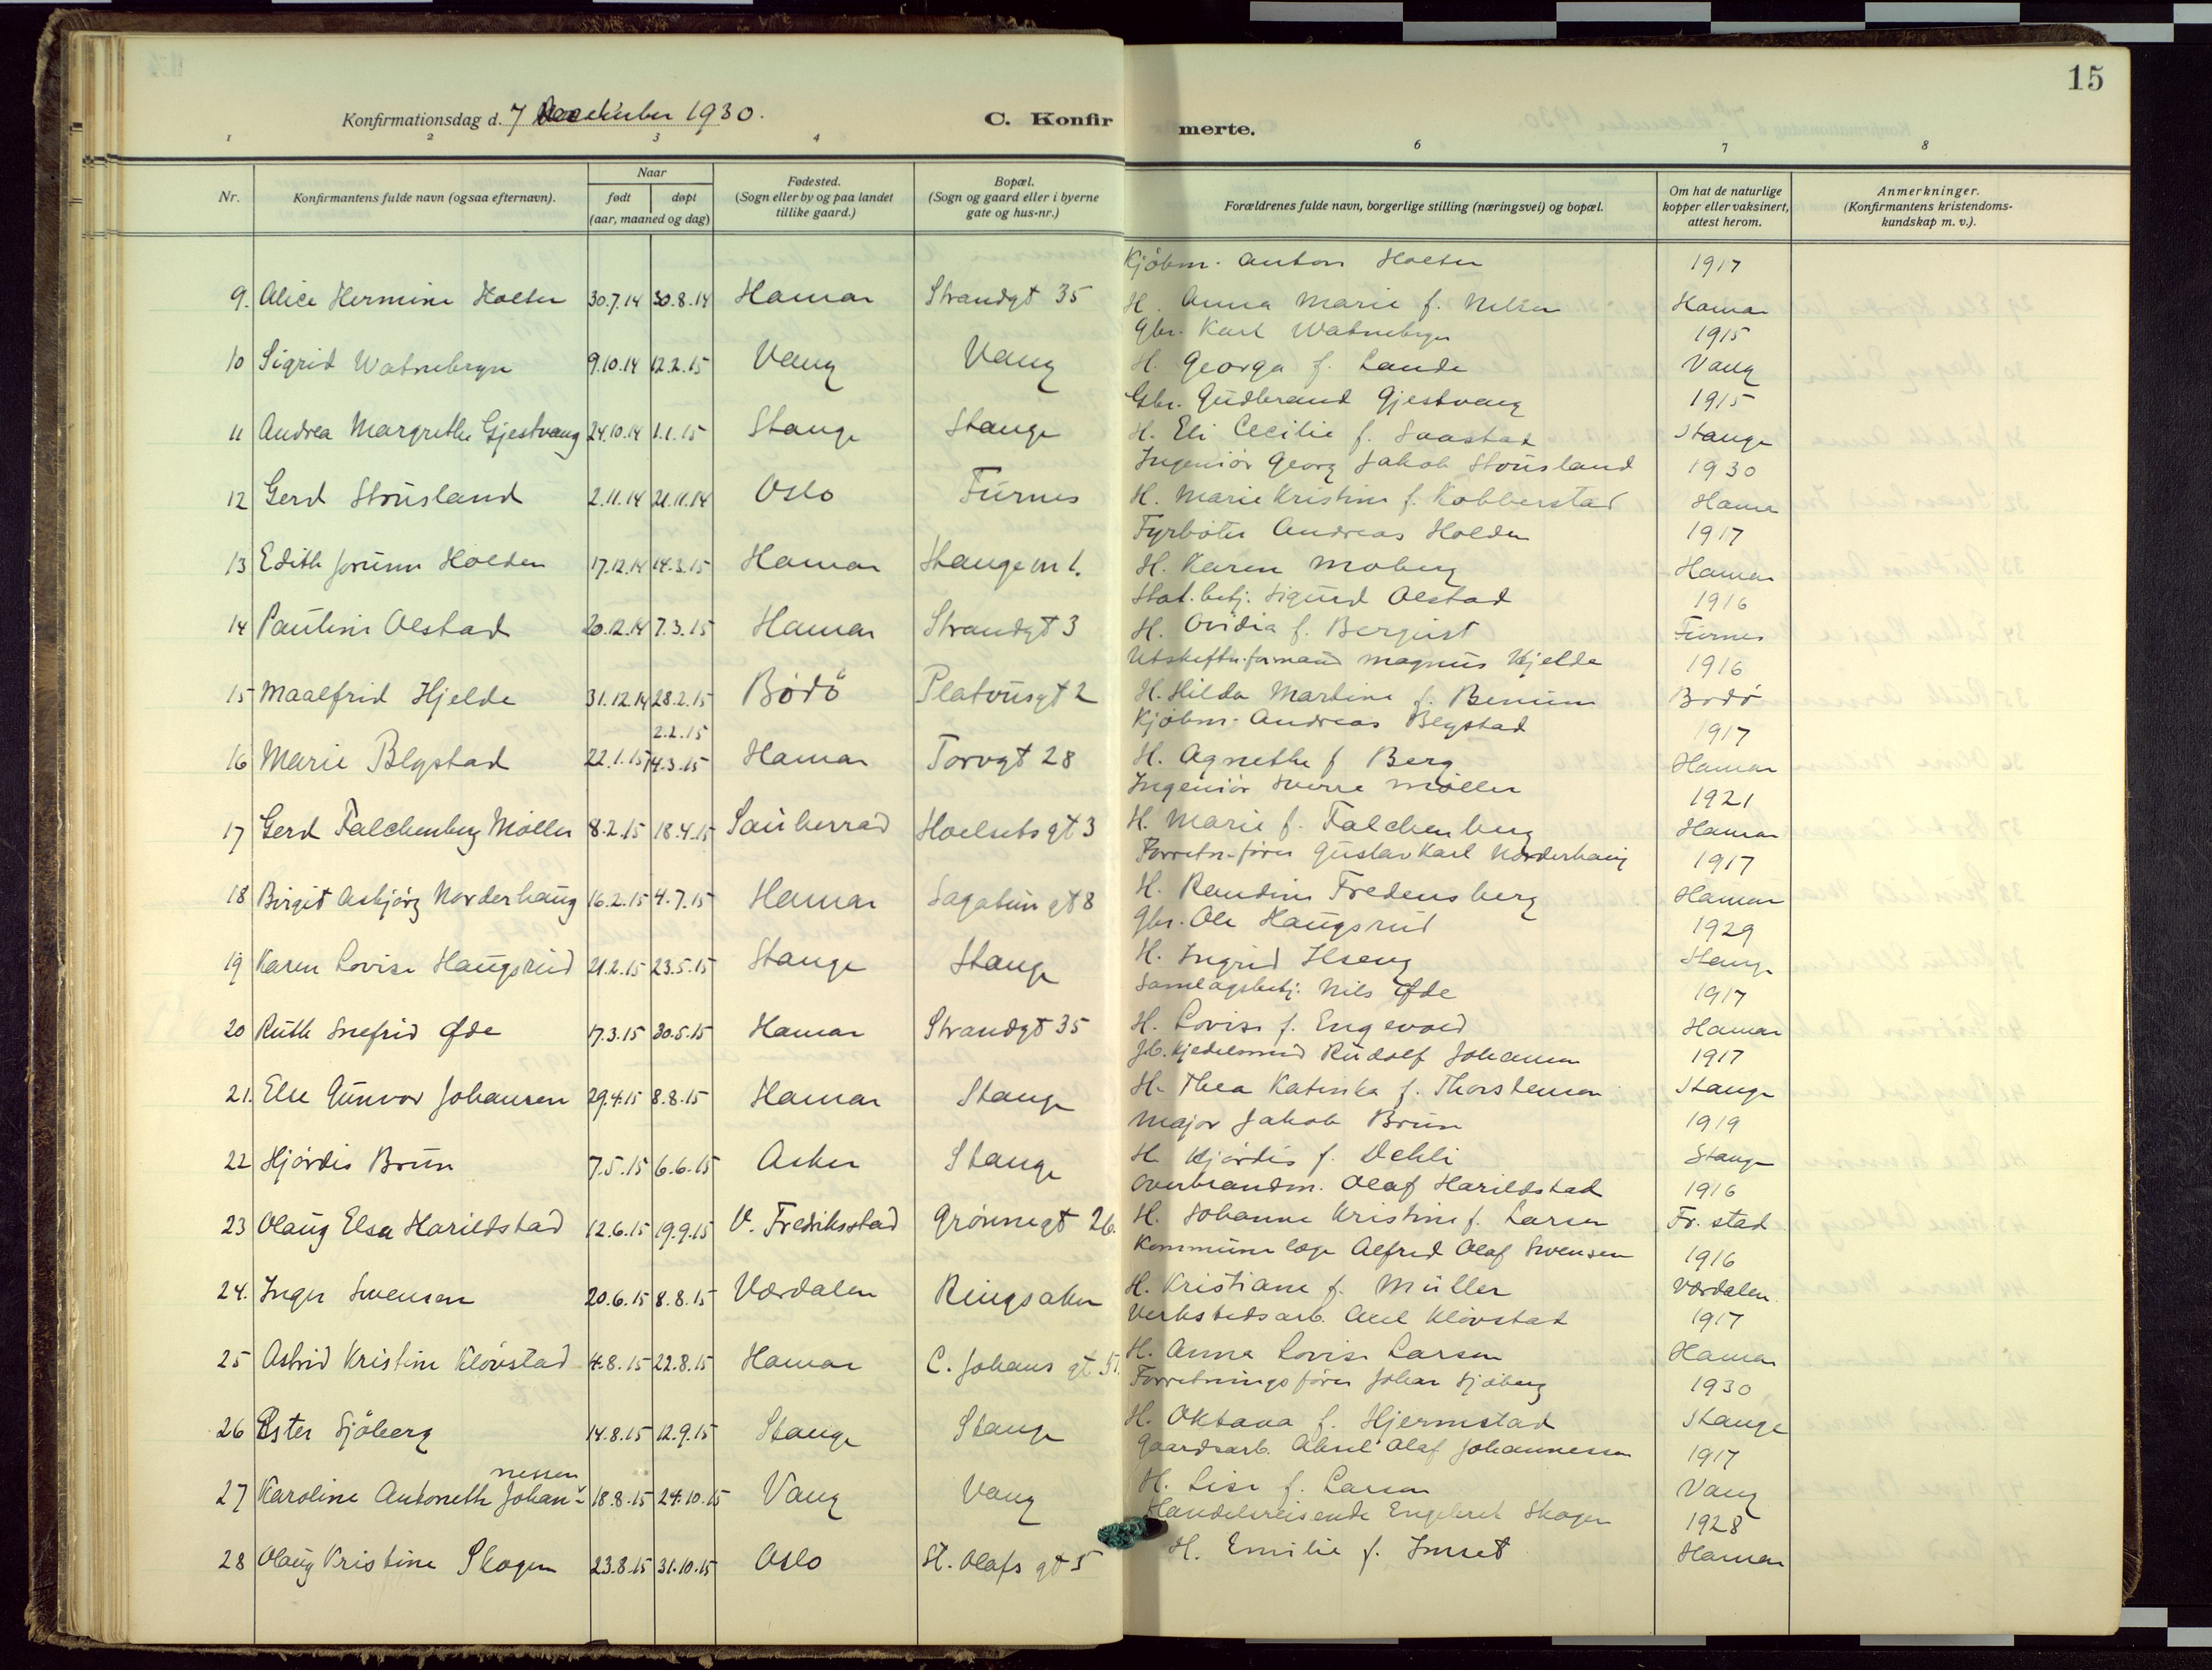 15
Konfirmationsdag d. 7 December 1930.
C. Konfirmerte.
1 2 3 4 6 7 8
Nr.
Konfirmantens fulde navn (ogsaa efternavn).
Naar
født døpt
(aar, maaned og dag)
Fødested.
(Sogn eller by og paa landet
tillike gaard.)
Bopæl.
(Sogn og gaard eller i byerne
gate og hus-nr.)
Forældrenes fulde navn, borgerlige stilling (næringsvei) og bopæl.
Om hat de naturlige
kopper eller vaksinert,
attest herom.
Anmerkninger.
(Konfirmantens kristendoms-
kundskap m. v.).
Kjöbm. Anton Holter 1917
9. Alice Hermine Holter 30.7.14 30.8.14 Hamar Strandgt 35 H. Anna Marie f. Nilsen Hamar
Gbr. Karl Watnebryn 1915
10 Sigrid Watnebryn 9.10.14 12.2.15 Vang Vang H. Georga f. Lande Vang
Gbr. Gudbrand Gjestvang 1915
11 Andrea Margrethe Gjestvang 24.10.14 1.1.15 Stange Stange H. Eli Cecilie f. Saastad Stange
Ingeniör Georg Jakob Stousland 1930
12 Gerd Stousland 2.11.14 21.11.14 Oslo Furnes H. Marie Kristine f. Kobberstad Hamar
Fyrböter Andreas Holden 1917
13 Edith Jorunn Holden 17.12.14 14.3.15 Hamar Stangevn 1. H. Karen Moberg Hamar
Stat.betj. Sigurd Olstad 1916
14 Pauline Olstad 20.12.14 7.3.15 Hamar Strandgt 3 H. Ovidia f. Berquist Furnes
Utskiftn.formand Magnus Hjelde 1916
15 Maalfrid Hjelde 31.12.14 28.2.15 Bodö Platousgt 2 H. Hilda Martine f. Benum Bodö
2.2.15 Kjöbm. Andreas Blystad 1917
16 Marie Blystad 22.1.15 14.3.15 Hamar Torvgt 28 H. Agnethe f Berg Hamar
Ingeniör Sverre Möller 1921
17 Gerd Falchenberg Möller 8.2.15 18.4.15 Sauherrad Hoelsetsgt 3 H. Marie f. Falchenberg Hamar
Forretn.förer Gustav Karl Norderhaug 1917
18 Birgit Asbjörg Norderhaug 16.2.15 4.7.15 Hamar Sagatungt 8 H. Randine Fredensberg Hamar
Gbr. Ole Haugsrud 1929
19 Karen Lovise Haugsrud 21.2.15 23.5.15 Stange Stange H. Ingrid Ilseng Stange
Samlagsbetj. Nils Ofde 1917
20 Ruth Snefrid Ofde 17.3.15 30.5.15 Hamar Strandgt 35 H. Lovise f. Engevold Hamar
Jb. kjedelsmed Rudolf Johansen 1917
21. Else Gunvor Johansen 29.4.15 8.8.15 Hamar Stange H. Thea Katinka f. Thorstensen Stange
Major Jakob Brun 1919
22 Hjördis Brun 7.5.15 6.6.15 Asker Stange H. Hjördis f. Dehli Stange
Overbrandm. Olaf Harildstad 1916
23 Olaug Elsa Harildstad 12.6.15 19.9.15 V. Fredriksstad Grönnegt 26. H. Johanne Kristine f. Larsen Fr.stad
Kommunelæge Alfred Olaf Svensen 1916
24. Inger Svensen 20.6.15 8.8.15 Værdalen Ringsaker H. Kristiane f. Müller Værdalen
Verkstedsarb. Axel Klövstad 1917
25 Astrid Kristine Klövstad 4.8.15 22.8.15 Hamar C. Johans gt 51. H. Anna Lovise Larsen Hamar
Forretningsförer Johan Sjöberg 1930
26 Ester Sjöberg 14.8.15 12.9.15 Stange Stange H. Oktava f. Hjermstad Stange
Gaardsarb. Aksel Olaf Johannessen 1917
27 Karoline Antonette Johannessen 18.8.15 24.10.15 Vang Vang H. Lise f. Larsen Vang
Handelsreisende Engebret Skogen 1928
28 Olaug Kristine Skogen 23.8.15 31.10.15 Oslo St. Olafs gt 5 H. Emilie f. Imset Hamar